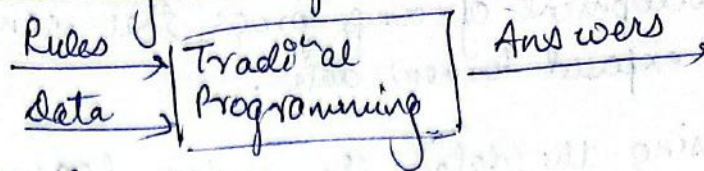 Rules
Data
Tradional
Programming
Answers